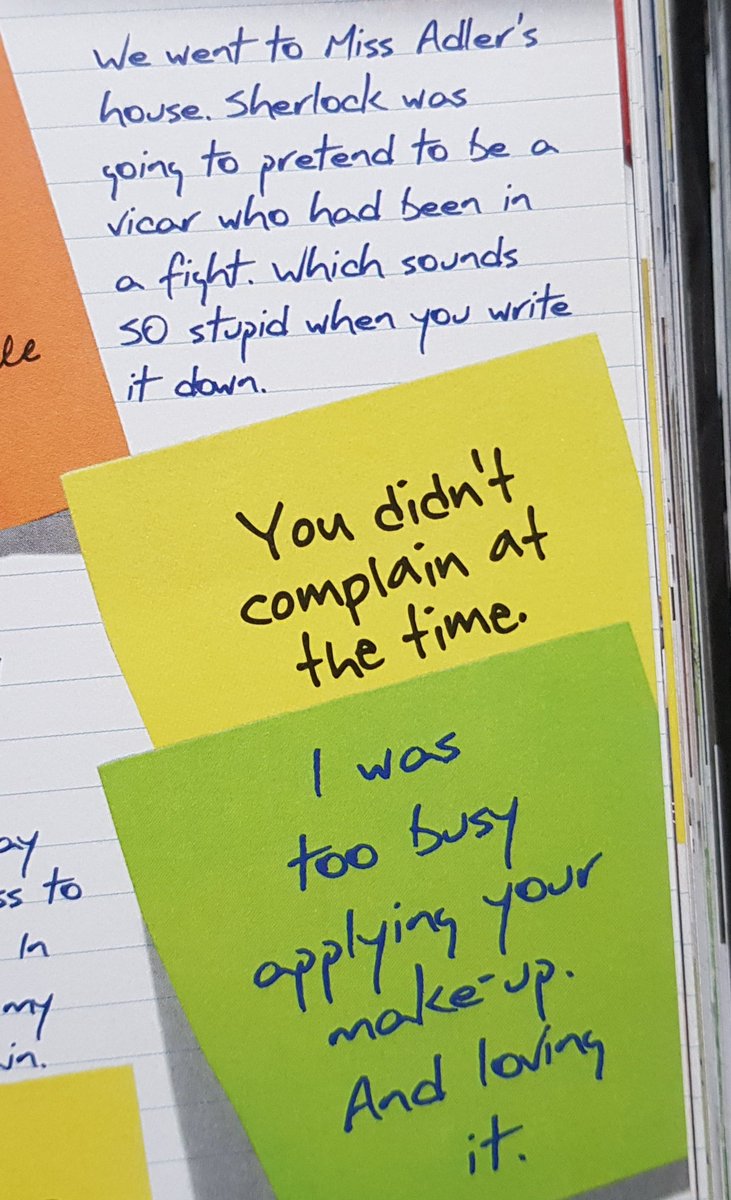 We went to Miss Adler's
house. Sherlock was
going to pretend to be a
vicar who had been in
a fight. Which sounds
SO stupid when you write
it down.
You didn't
complain at
the time.
I was
too busy
applying your
make-up.
And loving
it.
ss to
In
my